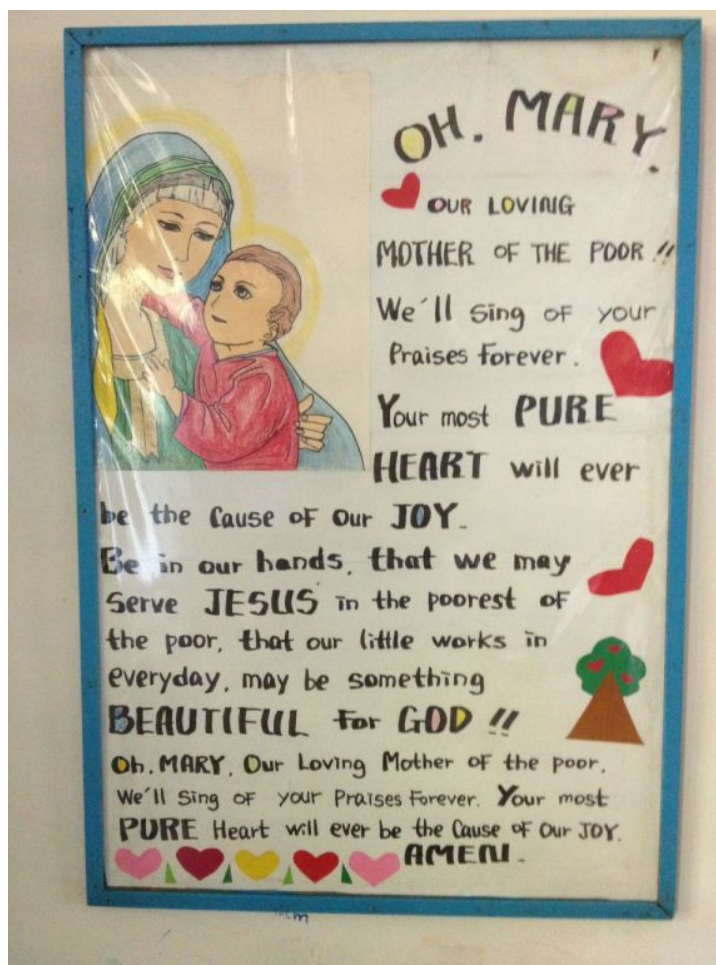 OH. MARY.
OUR LOVING
MOTHER OF THE POOR !!
We'll sing of your
Praises Forever.
Your most PURE
HEART will ever
be the Cause of Our JOY.
Be in our hands, that we may
Serve JESUS in the poorest of
the poor, that our little works in
everyday, may be something
BEAUTIFUL for GOD !!
Oh. MARY, Our Loving Mother of the poor,
We'll Sing of your Praises Forever. Your most
PURE Heart will ever be the Cause of Our JOY.
AMEN.